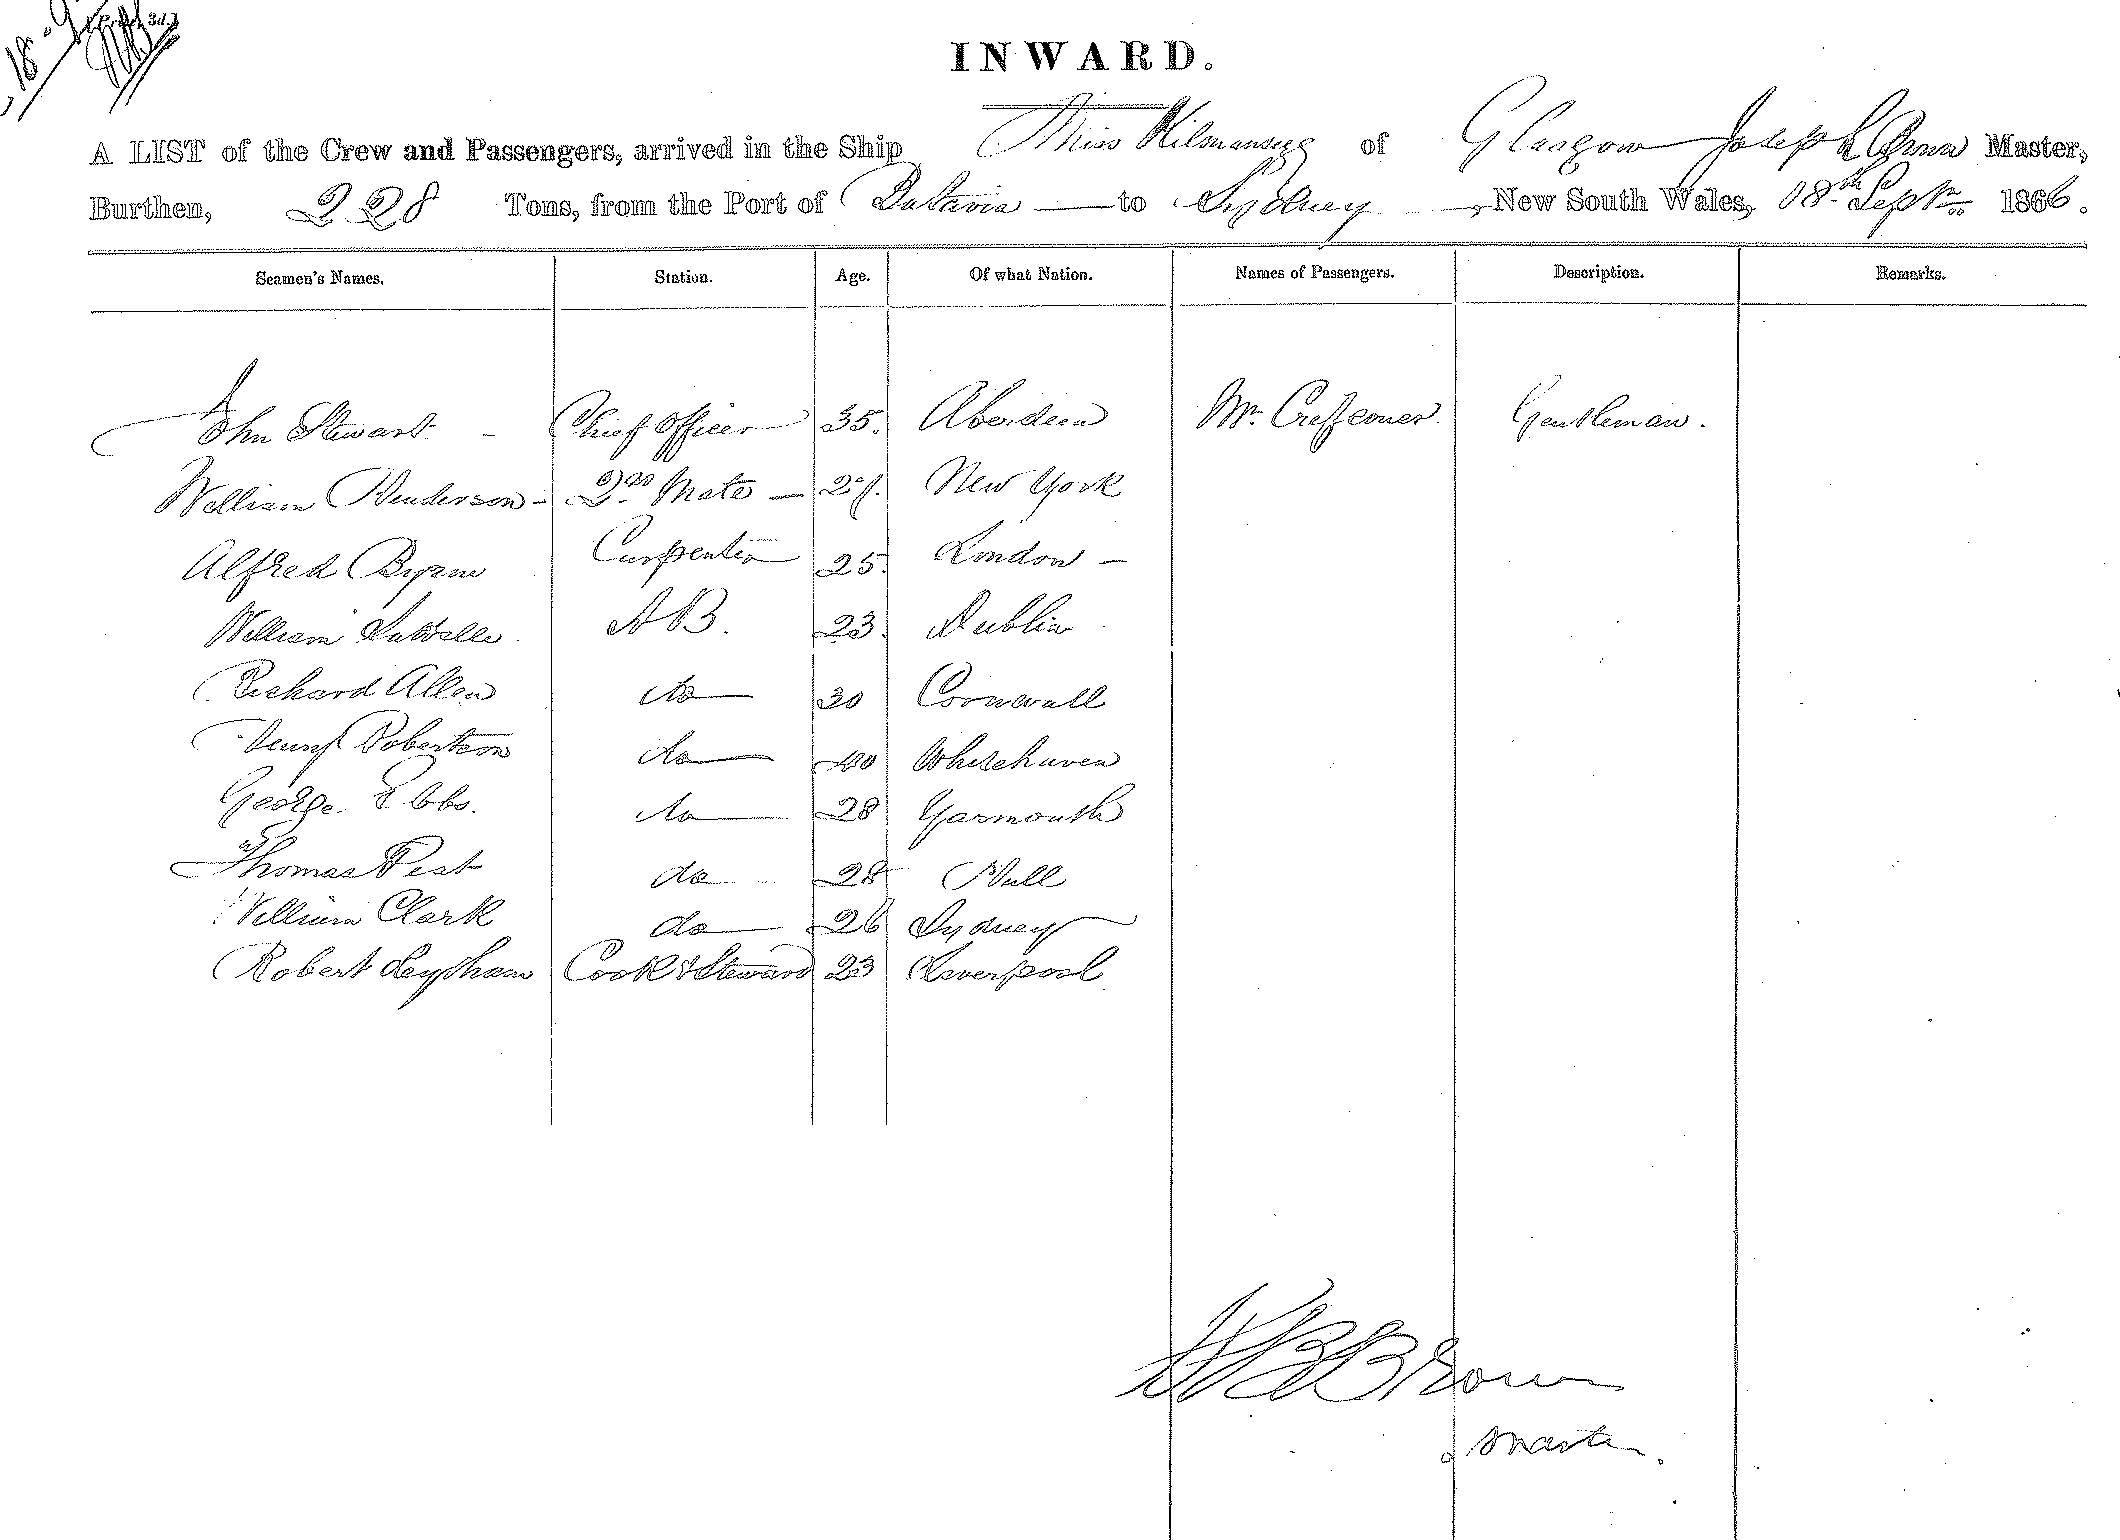 18-9
INWARD.
A LIST of the Crew and Passengers, arrived in the Ship Miss Kilmansegg of Glasgow Joseph Brown Master,
Burthen, 228 Tons, from the Port of Batavia to Sydney New South Wales, 18th Septr 1866.
Seamen's Names. Station. Age. Of what Nation. Names of Passengers. Description. Remarks.
John Stewart - Chief Officer 35. Aberdeen Mr. Gentleman.
William Henderson - 2nd Mate - New York
Alfred Carpenter 25. London -
William AB. 23. Dublin
Richard Allen do 30 Cornwall
Henry Robertson do 40 Whitehaven
George do 28 Yarmouth
Thomas do 28 Hull
William Clark do 26 Sydney
Robert Cook & Steward 23 Liverpool
Brown
Master.